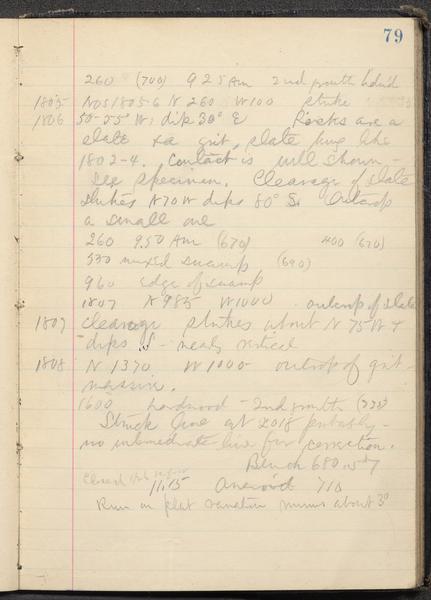 79
260 (700) 9 25 Am 2nd growth hdwd
1805 Nos 1805-6 N 260 W 100 strike
1806 50-55° W, dip 30° E Rocks are a
slate & a grit, slate
1802-4. Contact is well shown -
see specimen. Cleavage of slate
strikes N 70 W dips 80° S. Outcrop
a small one
260 9.50 Am (670) 400 (670)
530 mixed swamp (690)
960 edge of swamp
1807 N 985 W 1000 outcrop of slate
1807 cleavage strikes about N 75 W &
dips S - nearly vertical
1808 N 1370 W 1000 outcrop of grit -
massive.
1600 hardwood - 2nd growth
Struck line at 2018 probably -
no intermediate line for correction.
Bench 680
11.15 Aneroid 710
Run on plat variation minus about 3°